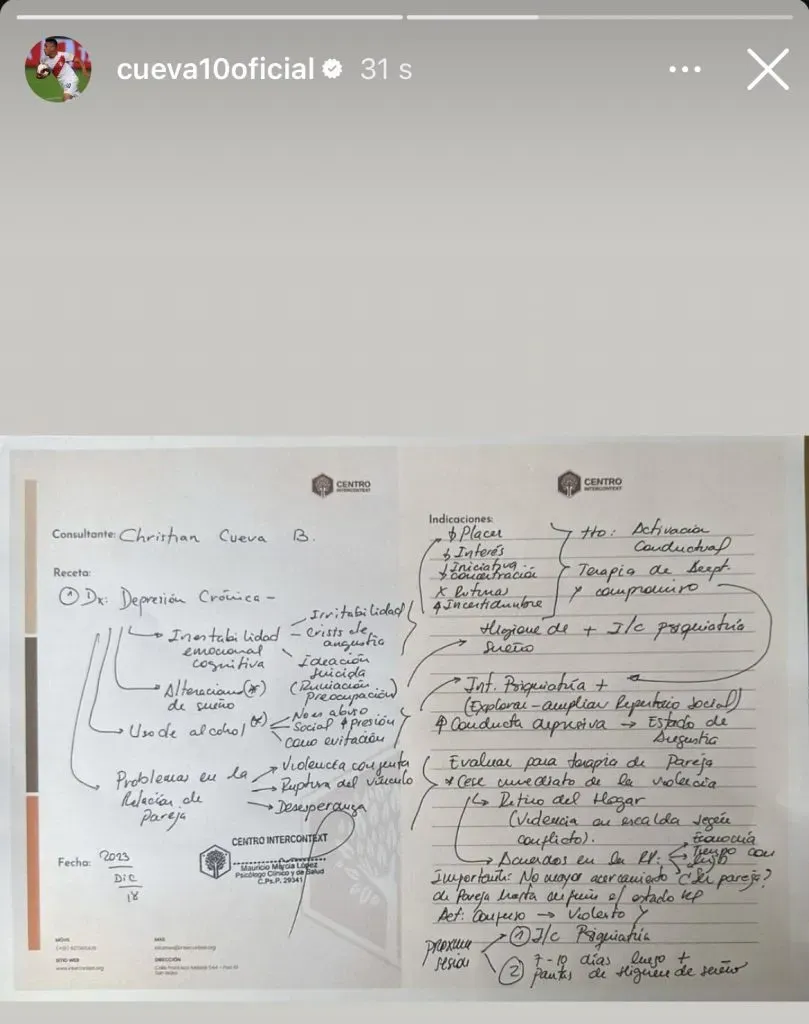 cueva10oficial 31 s
CENTRO
INTERCONTEXT
Consultante: Christian Cueva B.
Receta:
① Dx: Depresión Crónica -
Inestabilidad emocional cognitiva
- Irritabilidad
- Crisis de angustia
Ideación suicida
(Rumiación Preocupación)
Alteración (*) de sueño
Uso de alcohol (*)
No es abuso
Social ↑ presión
como evitación
Problemas en la Relación de Pareja
→ Violencia conjunta
→ Ruptura del vínculo
→ Desesperanza
Fecha: 2023
DIC
18
CENTRO INTERCONTEXT
Mauricio Murcia López
Psicólogo Clínico y de Salud
C.Ps.P. 29341
MÓVIL
MAIL
SITIO WEB
www.intercontext.org
DIRECCIÓN
CENTRO
INTERCONTEXT
Indicaciones:
↓ Placer
↓ Interés
↓ Iniciativa
↓ concentración
X Rutinas
↑ Incertidumbre
tto: Activación
Conductual
Terapia de Acept.
y compromiso
Higiene de + I/c psiquiatría
sueño
Int. Psiquiatría +
(Explorar - ampliar Repertorio social)
Conducta depresiva → Estado de
Angustia
Evaluar para terapia de Pareja
* Cese inmediato de la violencia
↳ Retiro del Hogar
(Violencia en escalda según
conflicto).
→ Acuerdos en la RP:
Economía
Tiempo con
¿Ser pareja?
Importante: No mayor acercamiento
de Pareja hasta
Violento y
próxima sesión
① I/c Psiquiatría
② 7-10 días luego +
pautas de Higiene de sueño